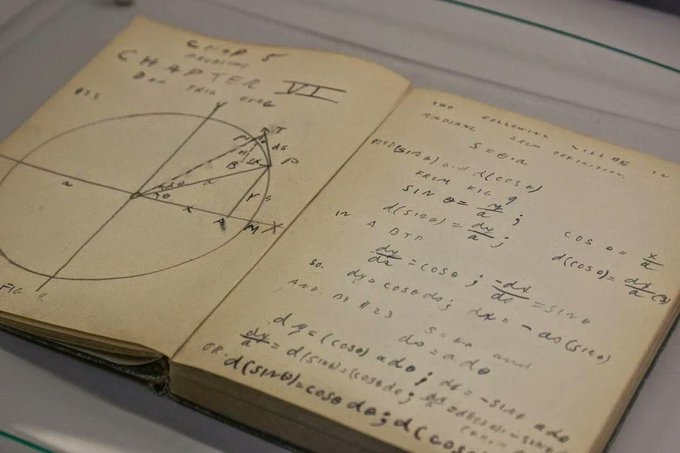 CHAP 5
CHAPTER VI
T
ds
P
B
dθ
θ
a
a
Y
x
A
M
X
FIG 9
THE FOLLOWING WILL BE IN
RADIANS FROM DEFINITION
S = θ·a
d(sinθ) and d(cosθ)
FROM FIG 9
SIN θ = y/a ; COS θ = x/a
d(sinθ) = dy/a ; d(cosθ) = dx/a
IN A BTP
dy/ds = cosθ ; -dx/ds = sinθ
SO. dy = cosθ ds ; dx = - ds(sinθ)
AND BY #23 S = θa and
ds = a dθ
dy = (cosθ) a dθ ; dx = -sinθ a dθ
dy/a = d(sinθ) = (cosθ dθ ;
OR d(sinθ) = cosθ dθ ; d(cosθ)